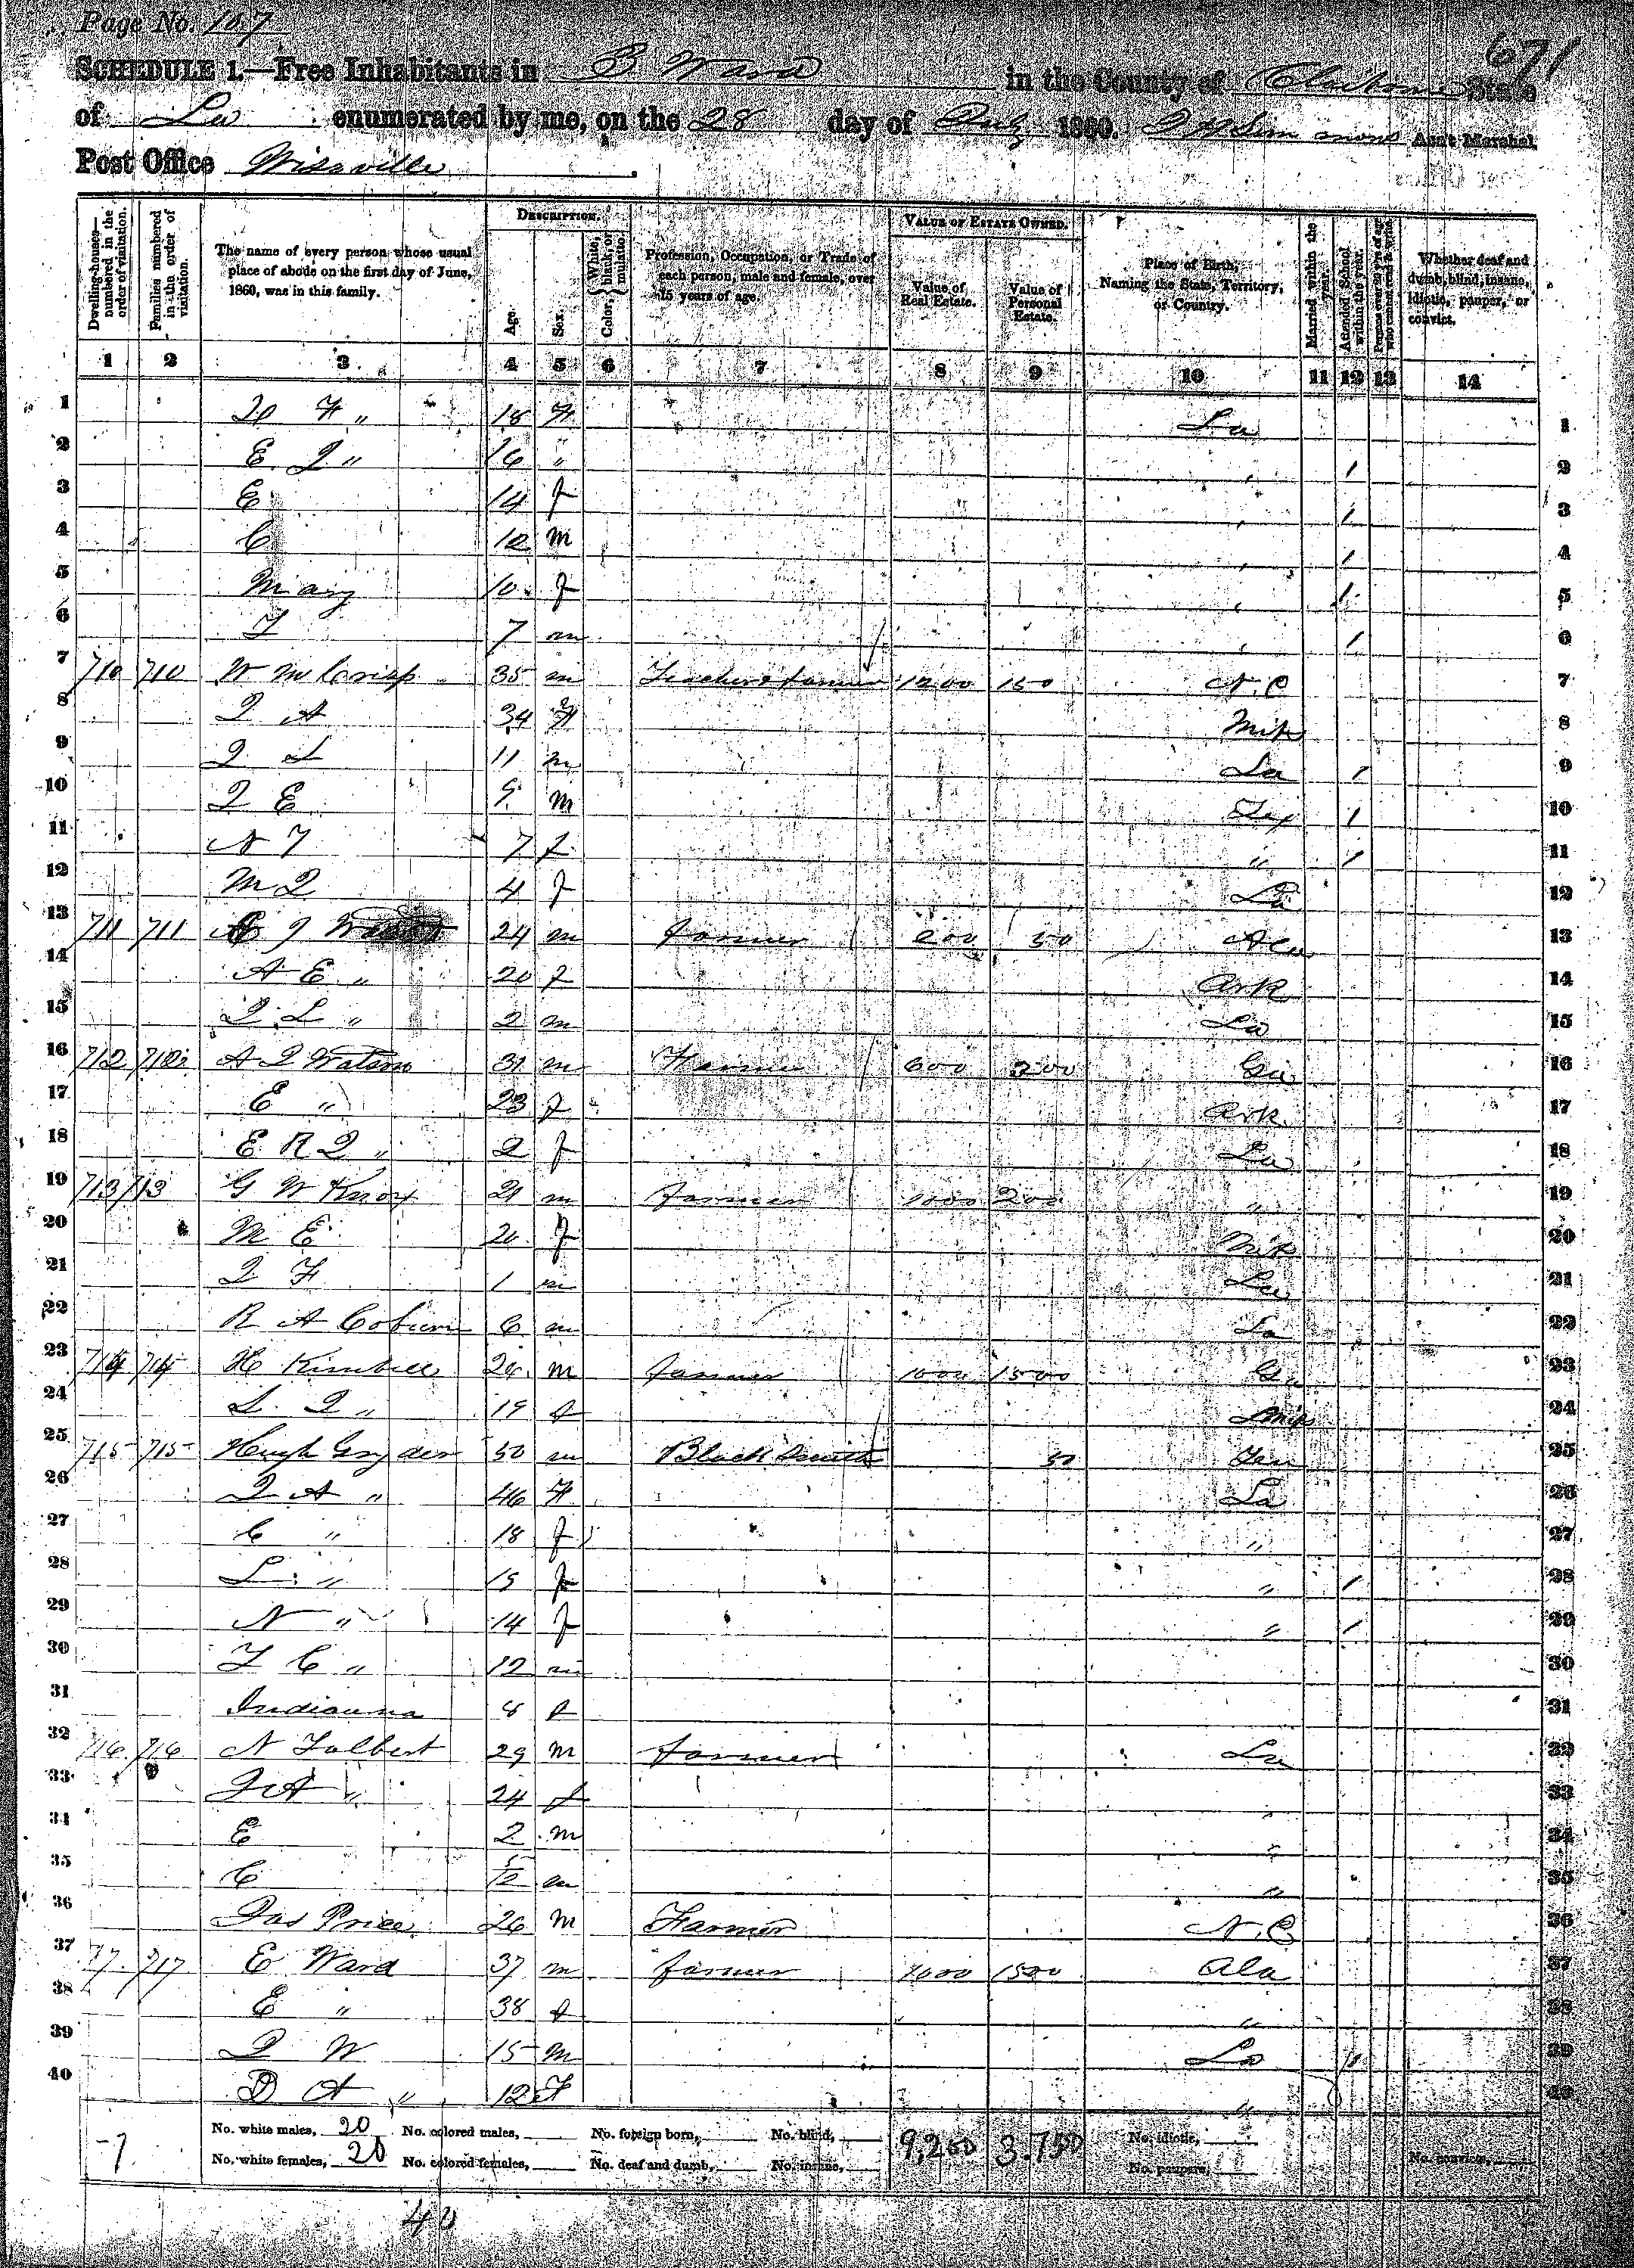 Page No. 107
671
SCHEDULE 1.—Free Inhabitants in B Ward in the County of Claiborne State
of La enumerated by me, on the 28 day of July 1860. Ass't Marshal.
Post Office
Dwelling-houses—numbered in the order of visitation.
Families numbered in the order of visitation.
The name of every person whose usual place of abode on the first day of June, 1860, was in this family.
DESCRIPTION.
Age.
Sex.
Color, { White, black, or mulatto.
Profession, Occupation, or Trade of each person, male and female, over 15 years of age.
VALUE OF ESTATE OWNED.
Value of Real Estate.
Value of Personal Estate.
Place of Birth, Naming the State, Territory, or Country.
Married within the year.
Attended School within the year.
Persons over 20 y'rs of age who cannot read & write.
Whether deaf and dumb, blind, insane, idiotic, pauper, or convict.
1 2 3 4 5 6 7 8 9 10 11 12 13 14
1 " 18 F La 1
2 E J " 16 " " / 2
3 E 14 f " / 3
4 C 12 m " / 4
5 Mary 10 f " / 5
6 T 7 m " / 6
7 710 710 W M Crisp 35 m Teacher & farmer 1200 150 N.C 7
8 J A 34 F Miss 8
9 J L 11 m La / 9
10 J E 9 m Tex / 10
11 N T 7 f " / 11
12 M J 4 f La 12
13 711 711 24 m farmer 200 50 Ala 13
14 A E " 20 f Ark 14
15 J L " 2 m La 15
16 712 712 A J Watson 31 m Farmer 600 300 Ga 16
17 E " 23 f Ark 17
18 E R J " 2 f La 18
19 713 713 G W Knox 21 m farmer 1000 200 " 19
20 M E 20 f Miss 20
21 J F 1 m La 21
22 R A Coburn 6 m La 22
23 714 714 H Kimbell 26 m farmer 1000 1500 Ga 23
24 L. J " 19 f Miss 24
25 715 715 Hugh 50 m Black Smith 50 Ten 25
26 J A " 46 F La 26
27 C " 18 f " 27
28 L " 15 f " / 28
29 N " 14 f " / 29
30 T C " 12 m 30
31 Indianna 8 f 31
32 716 716 N Talbert 29 m farmer La 32
33 J A " 24 f " 33
34 E 2 m " 34
35 C 5/12 m " 35
36 Jas Price 26 m Farmer N.C 36
37 717 717 E Ward 37 m farmer 4000 1500 Ala 37
38 E " 38 f " 38
39 J W 15 m La / 39
40 D A " 12 F " 40
-7 No. white males, 20 No. colored males, No. foreign born, No. blind, 9,250 3.750 No. idiotic,
No. white females, 20 No. colored females, No. deaf and dumb, No. insane, No. paupers, No. convicts,
40